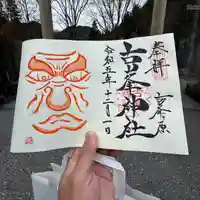 奉拝
古峯原
古峯神社
令和五年十二月一日